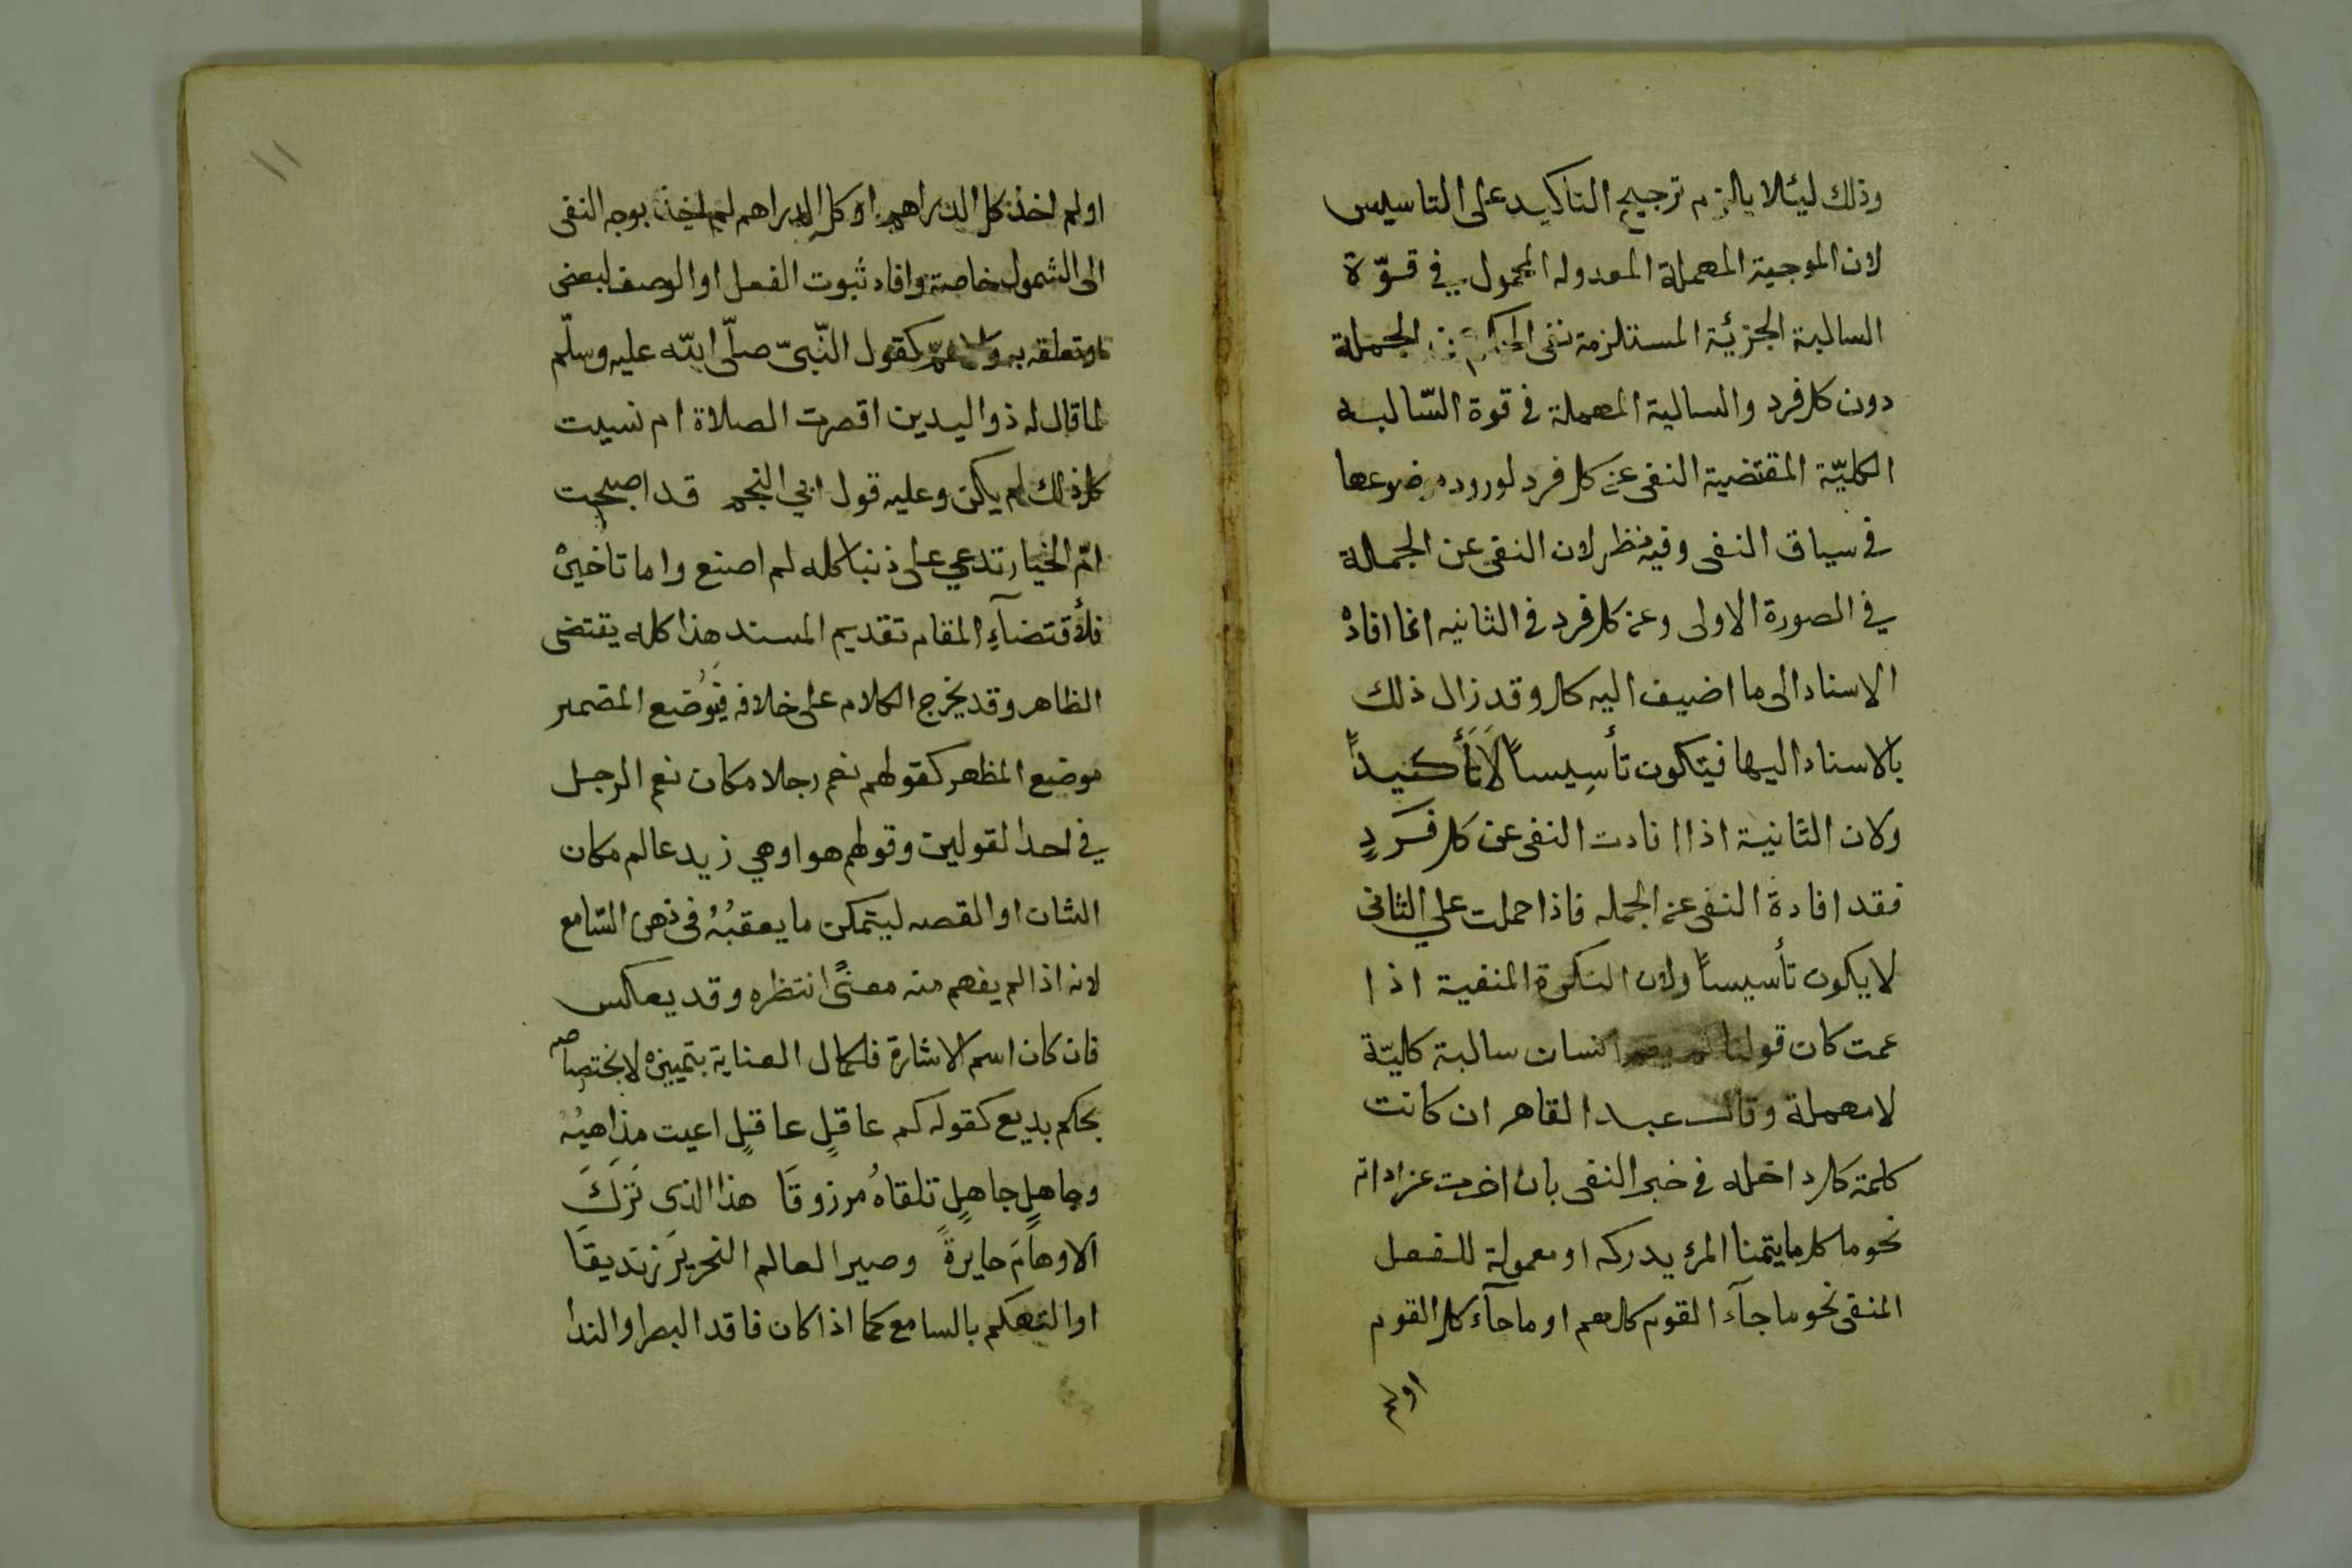 وذلك ليئلا يالزم ترجيح التاكيد على التاسيس
لان الموجبة المهملة المعدوله المحمول في قوّة
السالبة الجزئية المستلزمة نفى الحكم عن الجملة
دون كل فرد والسالبة المهملة في قوة السّالبه
الكليّة المقتضية النفى عن كل فرد لورود موضوعها
في سياق النفى وفيه نظر لان النفى عن الجملة
في الصورة الاولى وعن كل فرد في الثانيه انما افادهْ
الاسناد الى ما اضيف اليه كل وقد زال ذلك
بالاسناد اليها فيتكون تأسِيساً لَا تَأكيداً
ولان الثانية اذا افادت النفى عن كل فَردٍ
فقد افادة النفى عن الجمله فاذا حملت علي الثانى
لا يكون تأسيساً ولان النكرة المنفية اذا
عمت كان قولنا لم يقم انسان سالبة كليّة
لا مهملة وقال عبد القاهر ان كانت
كلمة كل داخله في خبر النفى بان اخرت عن اداته
نحو ما كل ما يتمنا المرء يدركه او معمولة للفعل
المنفى نحو ما جآء القوم كلهم او ما جآء كل القوم
اولم
١١
او لم اخذ كل الدراهم او كل الدراهم لم اخذ بوجه النفى
الى الشمول خاصة وافاد ثبوت الفعل او الوصف لبعض
او تعلقه به والا عمّ كقول النّبىّ صلّى الله عليه وسلّم
لما قال له ذو اليدين اقصرت الصلاة ام نسيت
كل ذلك لم يكن وعليه قول ابي النجم قد اصبحت
امّ الخيار تدعي على ذنبا كله لم اصنع واما تاخيرهْ
فلأقتضآءِ المقام تقديم المسند هذا كله يقتضى
الظاهر وقد يخرج الكلام على خلافه فيُوضَع المضمر
موضع المظهر كقولهم نعم رجلا مكان نعم الرجل
في احد القولين وقولهم هو اوهي زيد عالم مكان
الشان او القصه ليتمكن ما يعقبُهُ فى ذهن السّامع
لانه اذا لم يفهم منه معنىً انتظره وقد يعكس
فان كان اسم الاشارة فلكمال العناية بتمييزه لاختصاصه
بحكم بديع كقوله كم عاقلٍ عاقلٍ اعيت مذاهبُهُ
وجاهلٍ جاهلٍ تلقاهُ مرزوقَا هذا الذى تَرَكَ
الاوهامَ حايرةً وصير العالم النحريرَ زنديقَا
او التهكم بالسامع كما اذا كان فاقد البصر او الندا